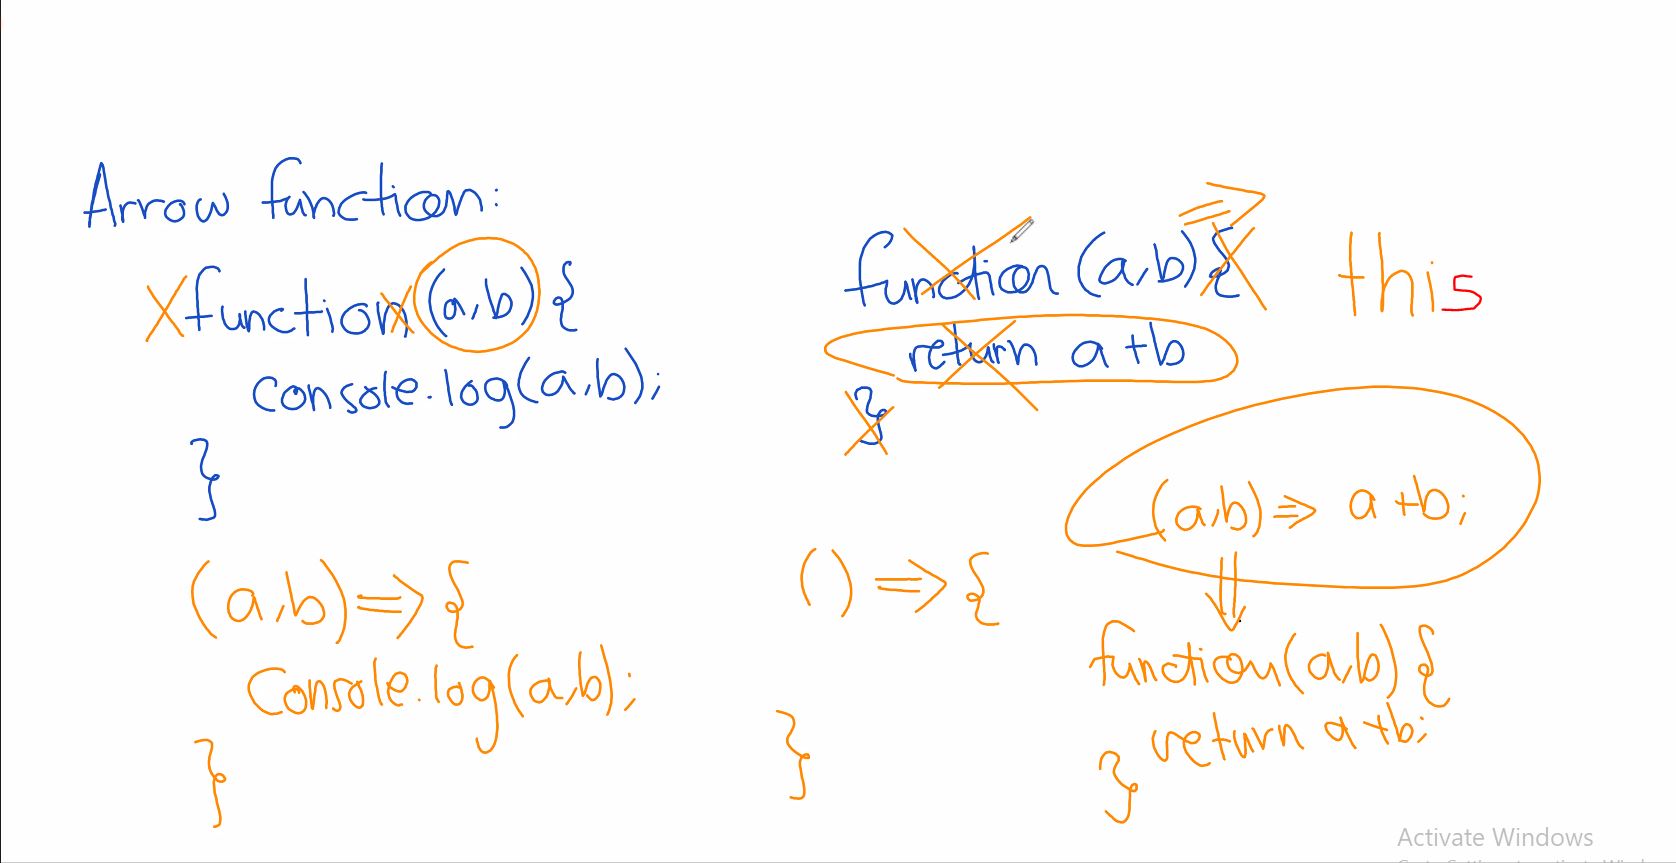 Arrow function:
function (a,b) {
console.log(a,b);
}
(a,b) => {
Console.log(a,b);
}
function (a,b) {
return a+b
}
this
() => {
}
(a,b) => a+b;
function (a,b) {
return a+b;
}
Activate Windows